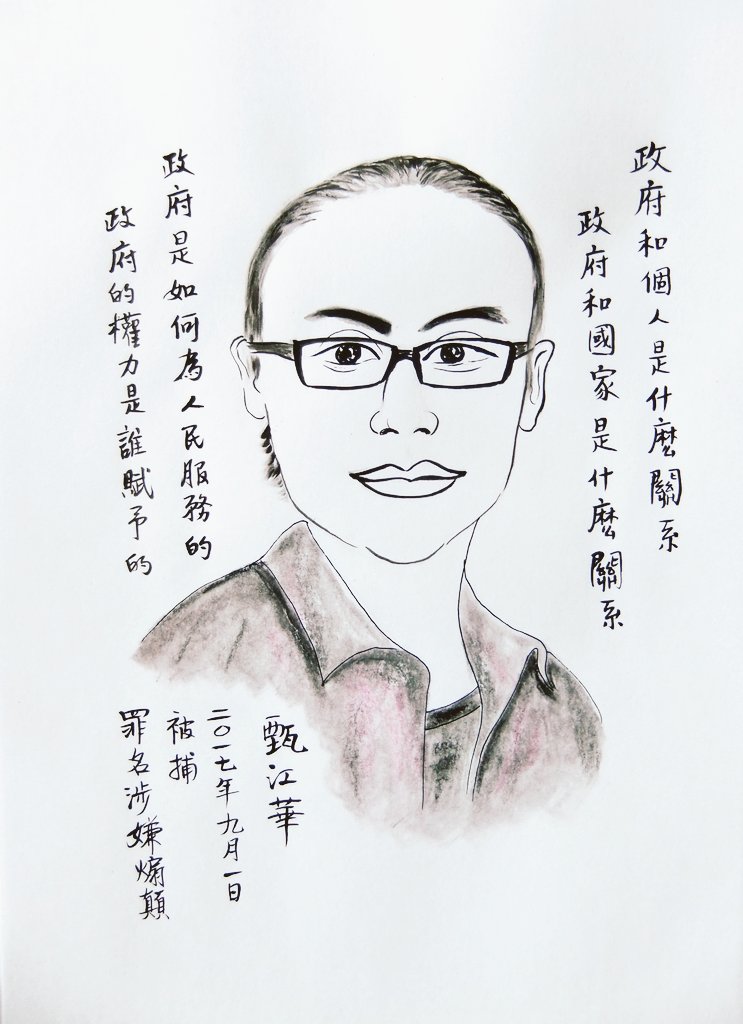 政府和個人是什麼關系
政府和國家是什麼關系
政府是如何為人民服務的
政府的權力是誰賦予的
甄江華
二〇一七年九月一日
被捕
罪名涉嫌煽顛